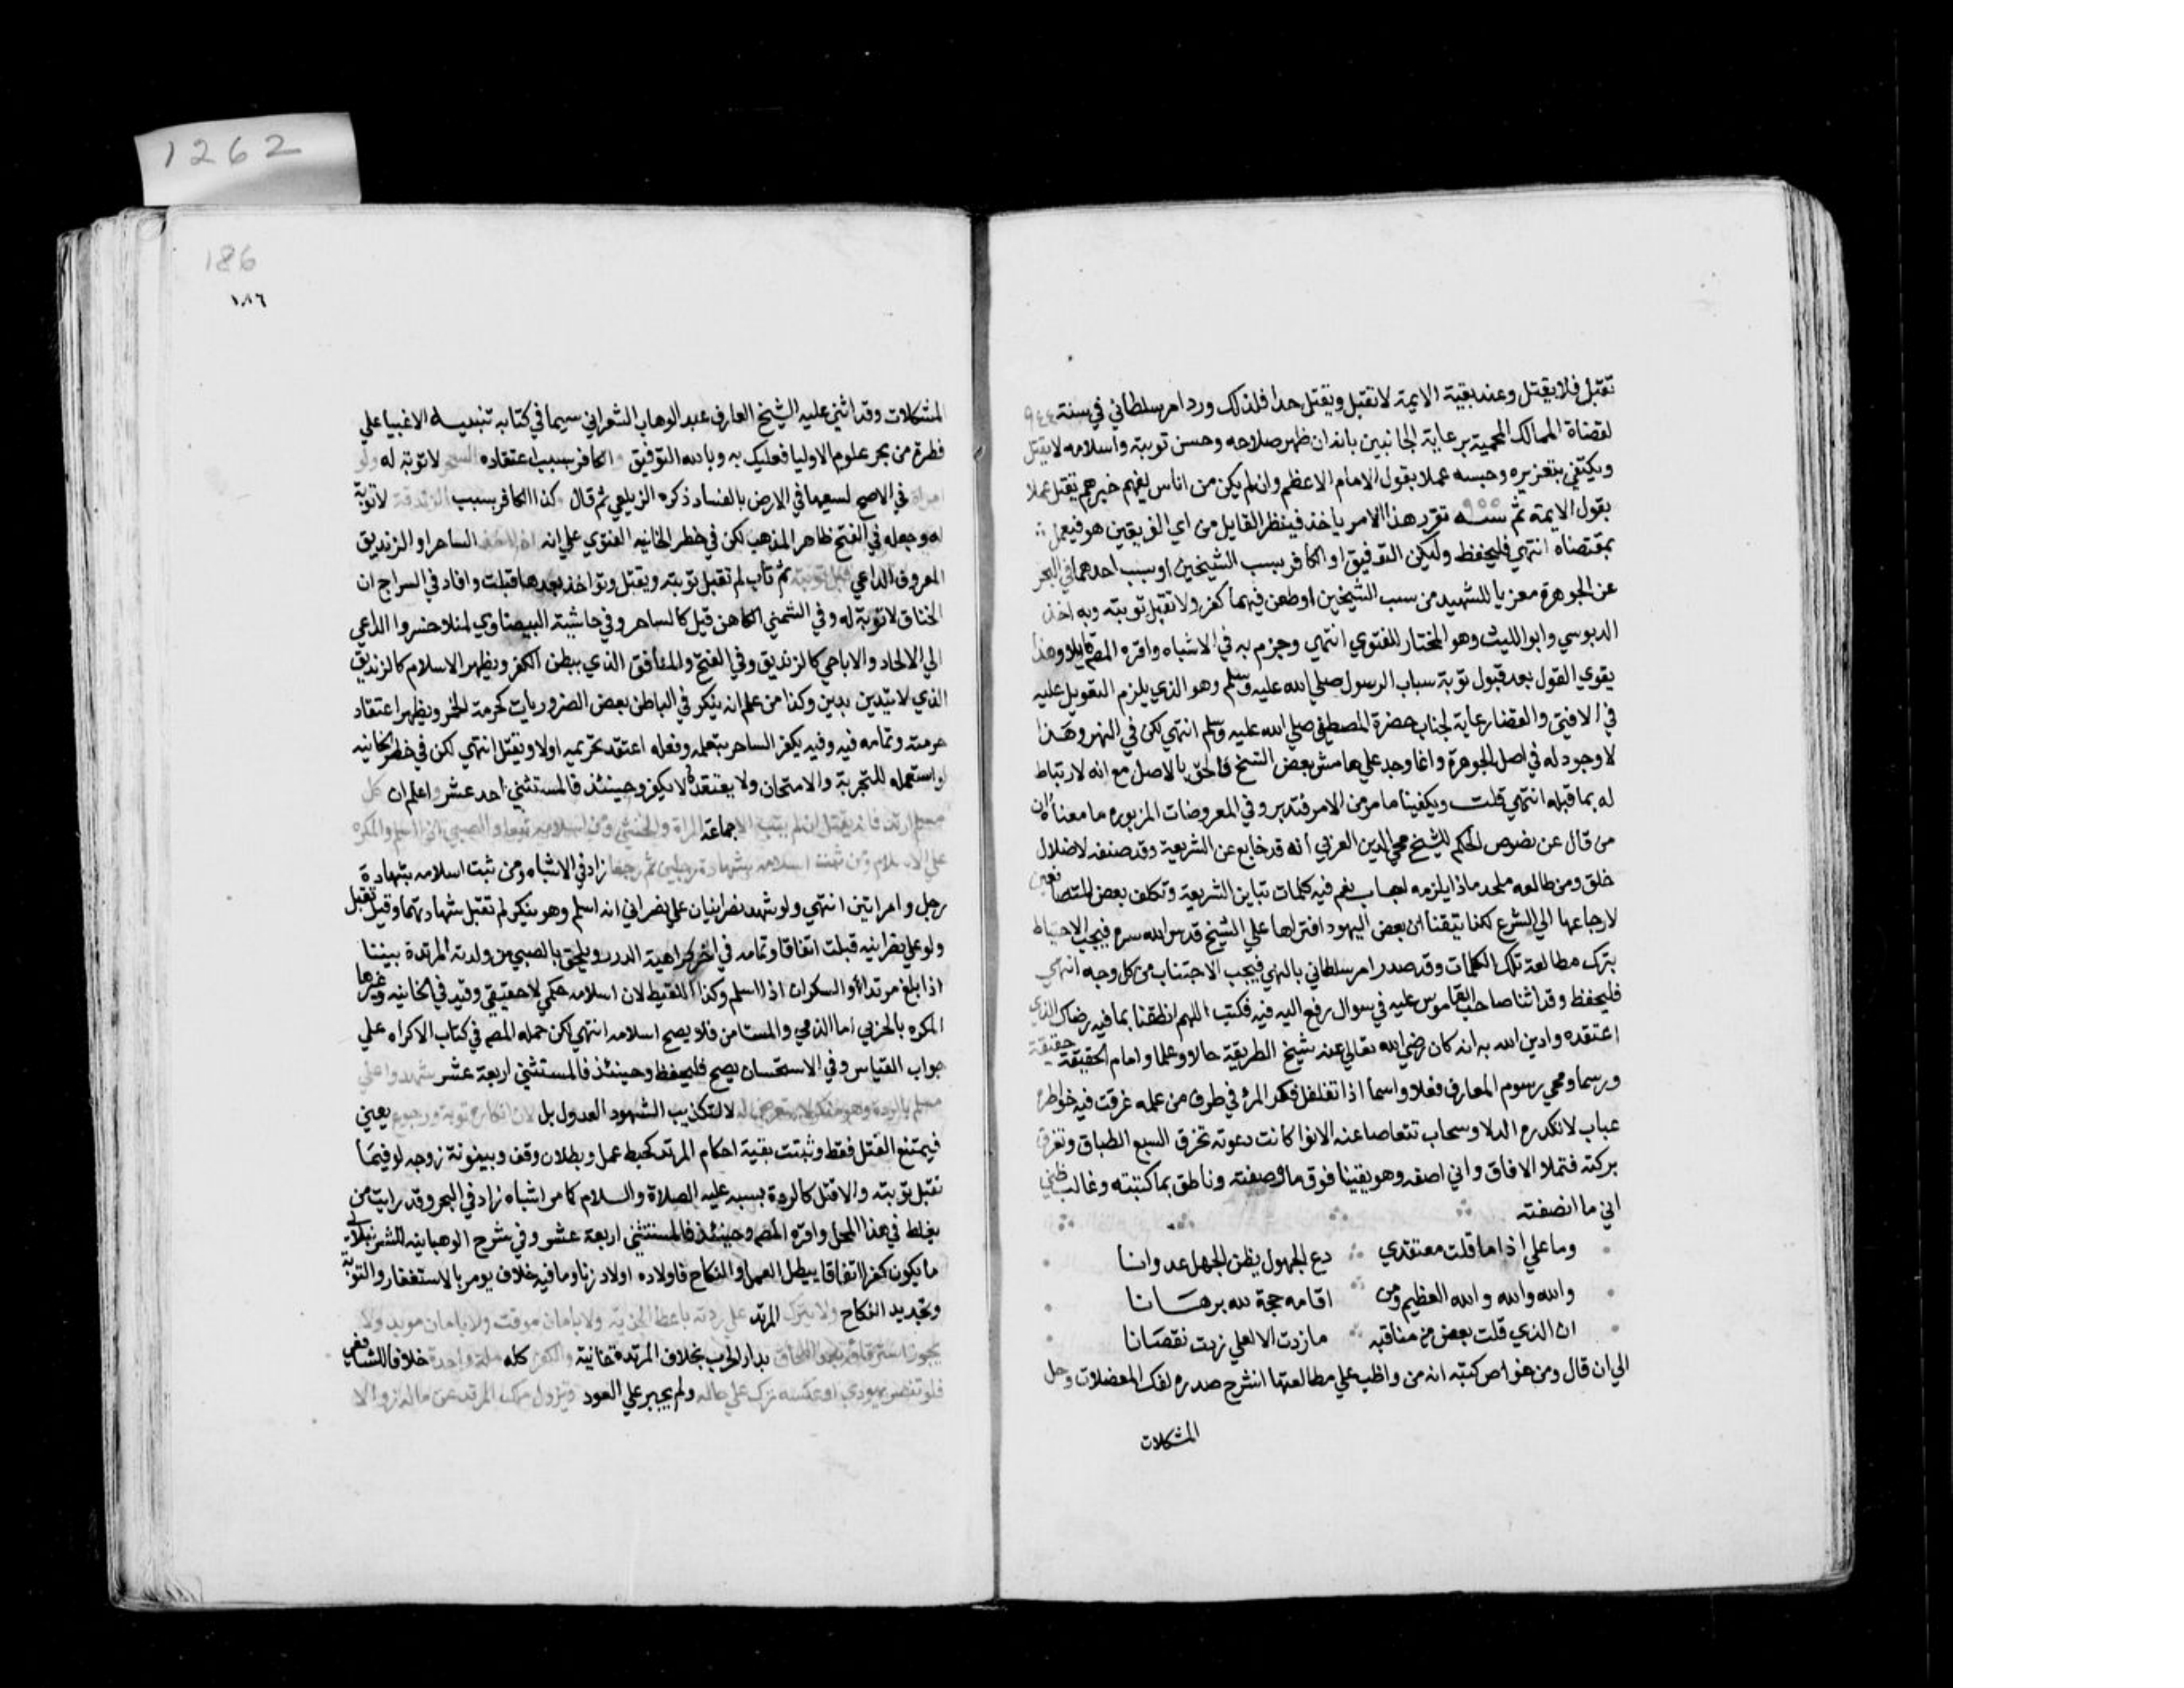 تقبل فلا يقتل وعند بقية الايمة لا تقبل ويقتل حدا فلذلك ورد امر سلطاني في سنة ٩٤٤
لقضاة الممالك المحمية برعاية الجانبين بانه ان ظهر صلاحه وحسن توبته واسلامه لا يقتل
ويكتفي بتعزيره وحبسه عملا بقول الامام الاعظم وان لم يكن من اناس يفهم خيرهم يقتل عملا
بقول الايمة ثم سنه ٩٥٥ تقرر هذا الامر باخذ فينظر القايل من اي الفريقين هو فيعمل
بمقتضاه انتهي فليحفظ وليكن التوفيق او الكافر بسب الشيخين او بسب احدهما في البحر
عن الجوهرة معزيا للشهيد من سب الشيخين او طعن فيهما كفر ولا تقبل توبته وبه اخذ
الدبوسي وابو الليث وهو المختار للفتوي انتهي وجزم به في الاشباه واقره المصم قايلا وهذا
يقوي القول بعد قبول توبة سباب الرسول صلي الله عليه وسلم وهو الذي يلزم التعويل عليه
في الافتي والقضا رعاية لجناب حضرة المصطفي صلي الله عليه وسلم انتهي لكن في النهر وهذا
لا وجود له في اصل الجوهرة وانما وجد علي هامش بعض النسخ فالحق بالاصل مع انه لا ارتباط
له بما قبله انتهي قلت ويكفينا ما مر من الامر فتدبر وفي المعروضات المزبوره ما معناه ان
من قال عن نصوص الحكم للشيخ محي الدين العربي انه قد خارج عن الشريعة وقد صنفه لاضلال
خلق ومن طالعه ملحد ماذا يلزمه اجاب نعم فيه كلمات تباين الشريعة وتكلف بعض المتصلفين
لارجاعها الي الشرع لكنا تيقنا ان بعض اليهود افتراها علي الشيخ قدس الله سره فيجب الاحتياط
بترك مطالعة تلك الكلمات وقد صدر امر سلطاني بالنهي فيجب الاجتناب من كل وجه انتهي
فليحفظ وقد اثنا صاحب القاموس عليه في سوال رفع اليه فيه فكتب اللهم انطقنا بما فيه رضاك الذي
اعتقده وادين الله به انه كان رضي الله تعالي عنه شيخ الطريقة حالا وعلما وامام الحقيقة حقيقة
ورسما ومحي رسوم المعارف فعلا واسما اذا تغلغل فكر المرء في طرف من علمه غرقت فيه خواطره
عباب لا تكدره الدلا وسحاب تتقاصا عنه الانوا كانت دعوته تخرق السبع الطباق وتفرق
بركته فتملا الافاق واني اصفه وهو يقينا فوق ما وصفته وناطق بما كتبته وغالب ظني
اني ما انصفته
وما علي اذا ما قلت معتقدي دع الجهول يظن الجهل عدوانا
والله والله والله العظيم ومن اقامه حجة لله برهانا
ان الذي قلت بعض من مناقبه ما زدت الا لعلي زدت نقصانا
الي ان قال ومن خواص كتبه انه من واظب علي مطالعتها انشرح صدره لفك المعضلات وحل
المشكلات
1262
186
١٨٦
المشكلات وقد اثني عليه الشيخ العارف عبد الوهاب الشعراني سيما في كتابه تنبيه الاغبيا علي
قطرة من بحر علوم الاوليا فعليك به وبالله التوفيق والكافر بسبب اعتقاده السحر لا توبة له ولو
امراة في الاصح لسعيها في الارض بالفساد ذكره الزيلعي ثم قال وكذا الكافر بسبب الزندقة لا توبة
له وجعله في الفتح ظاهر المذهب لكن في خطر الخانيه الفتوي علي انه اذا اخذ الساحر او الزنديق
المعروف الداعي قبل توبته ثم تاب لم تقبل توبته ويقتل ولو اخذ بعدها قبلت وافاد في السراج ان
الخناق لا توبة له وفي الشمني الكاهن قيل كالساحر وفي حاشية البيضاوي لمنلا خسروا الداعي
الي الالحاد والاباحي كالزنديق وفي الفتح والمنافق الذي يبطن الكفر ويظهر الاسلام كالزنديق
الذي لا يتدين بدين وكذا من علم انه ينكر في الباطن بعض الضروريات كحرمة الخمر ويظهر اعتقاد
حرمته وتمامه فيه وفيه يكفر الساحر بتعلمه وفعله اعتقد تحريمه اولا ويقتل انتهي لكن في خطر الخانيه
لو استعمله للتجربة والامتحان ولا يعتقده لا يكفر وحينئذ فالمستثني احد عشر واعلم ان كل
مسلم ارتد فانه يقتل ان لم يتب الا جماعة المراة والخنثي ومن اسلامه تبعا والصبي اذا اسلم والمكره
علي الاسلام ومن ثبت اسلامه بشهادة رجلين ثم رجعا زاد في الاشباه ومن ثبت اسلامه بشهادة
رجل وامراتين انتهي ولو شهد نصرانيان علي نصراني انه اسلم وهو ينكر لم تقبل شهادتهما وقيل تقبل
ولو علي نصرانيه قبلت اتفاقا وتمامه في اخر كراهية الدرر ويلحق بالصبي من ولدته المرتدة بيننا
اذا بلغ مرتدا والسكران اذا اسلم وكذا اللقيط لان اسلامه حكمي لا حقيقي وقيد في الخانيه وغيرها
المكره بالحربي اما الذمي والمستامن فلا يصح اسلامه انتهي لكن حمله المصم في كتاب الاكراه علي
جواب القياس وفي الاستحسان يصح فليحفظ وحينئذ فالمستثني اربعة عشر شهدوا علي
مسلم بالردة وهو منكر لا يتعرض له لا لتكذيب الشهود العدول بل لان انكاره توبة ورجوع يعني
فيمتنع القتل فقط وتثبت بقية احكام المرتد كحبط عمل وبطلان وقف وبينونة زوجه لو فيما
تقبل توبته والا قتل كالردة بسبه عليه الصلاة والسلام كما مر اشباه زاد في البحر وقد رايت من
يغلط في هذا المحل واقره المصم وحينئذ فالمستثني اربعة عشر وفي شرح الوهبانيه للشرنبلالي
ما يكون كفرا اتفاقا يبطل العمل والنكاح فاولاده اولاد زنا وما فيه خلاف يومر بالاستغفار والتوبة
وتجديد النكاح ولا يترك المرتد علي ردته باعطا الجزية ولا بامان موقت ولا بامان موبد ولا
يجوز استرقاقه بعد اللحاق بدار الحرب بخلاف المرتدة خانية والكفر كله ملة واحدة خلافا للشافعي
فلو تنصر يهودي او عكسه ترك علي حاله ولم يجبر علي العود ويزول ملك المرتد عن ماله زوالا